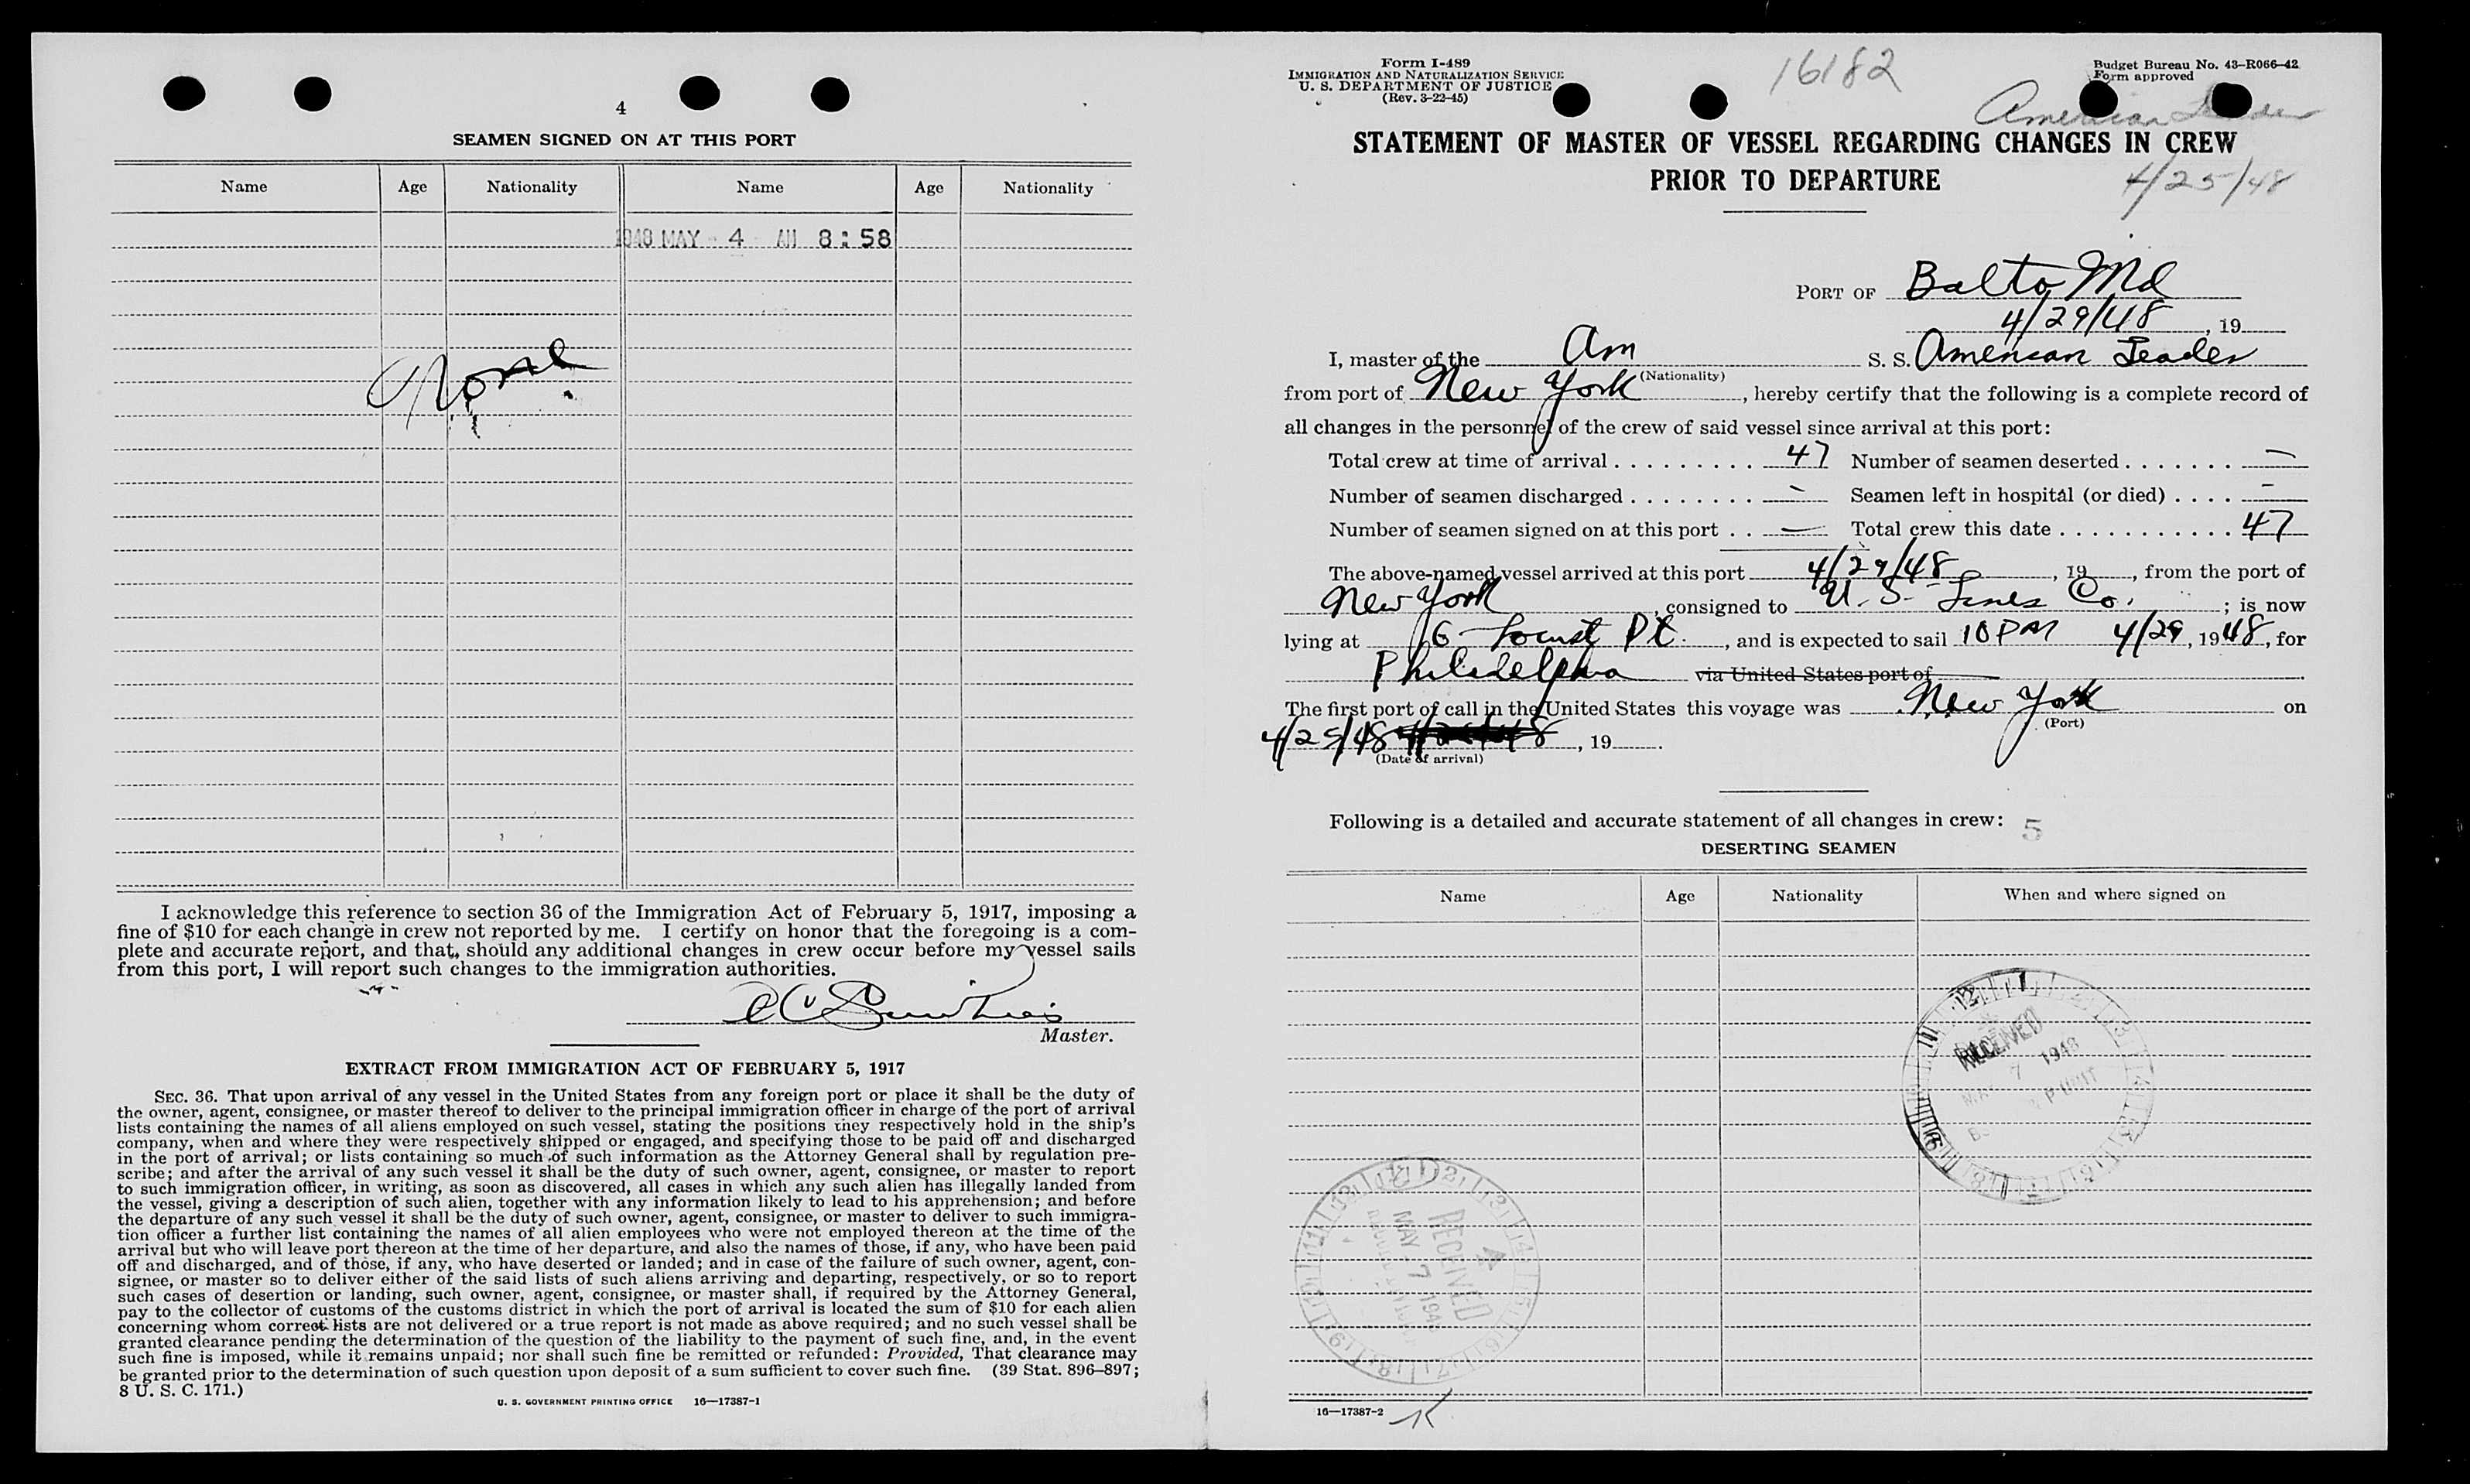 4
SEAMEN SIGNED ON AT THIS PORT
Name Age Nationality Name Age Nationality
1948 MAY - 4 AM 8:58
None
I acknowledge this reference to section 36 of the Immigration Act of February 5, 1917, imposing a
fine of $10 for each change in crew not reported by me. I certify on honor that the foregoing is a com-
plete and accurate report, and that, should any additional changes in crew occur before my vessel sails
from this port, I will report such changes to the immigration authorities.
Master.
EXTRACT FROM IMMIGRATION ACT OF FEBRUARY 5, 1917
SEC. 36. That upon arrival of any vessel in the United States from any foreign port or place it shall be the duty of
the owner, agent, consignee, or master thereof to deliver to the principal immigration officer in charge of the port of arrival
lists containing the names of all aliens employed on such vessel, stating the positions they respectively hold in the ship's
company, when and where they were respectively shipped or engaged, and specifying those to be paid off and discharged
in the port of arrival; or lists containing so much of such information as the Attorney General shall by regulation pre-
scribe; and after the arrival of any such vessel it shall be the duty of such owner, agent, consignee, or master to report
to such immigration officer, in writing, as soon as discovered, all cases in which any such alien has illegally landed from
the vessel, giving a description of such alien, together with any information likely to lead to his apprehension; and before
the departure of any such vessel it shall be the duty of such owner, agent, consignee, or master to deliver to such immigra-
tion officer a further list containing the names of all alien employees who were not employed thereon at the time of the
arrival but who will leave port thereon at the time of her departure, and also the names of those, if any, who have been paid
off and discharged, and of those, if any, who have deserted or landed; and in case of the failure of such owner, agent, con-
signee, or master so to deliver either of the said lists of such aliens arriving and departing, respectively, or so to report
such cases of desertion or landing, such owner, agent, consignee, or master shall, if required by the Attorney General,
pay to the collector of customs of the customs district in which the port of arrival is located the sum of $10 for each alien
concerning whom correct lists are not delivered or a true report is not made as above required; and no such vessel shall be
granted clearance pending the determination of the question of the liability to the payment of such fine, and, in the event
such fine is imposed, while it remains unpaid; nor shall such fine be remitted or refunded: Provided, That clearance may
be granted prior to the determination of such question upon deposit of a sum sufficient to cover such fine. (39 Stat. 896–897;
8 U. S. C. 171.)
U. S. GOVERNMENT PRINTING OFFICE 16—17387-1
Form I-489
IMMIGRATION AND NATURALIZATION SERVICE
U. S. DEPARTMENT OF JUSTICE
(Rev. 3-22-45)
16182
Budget Bureau No. 43-R066-42
Form approved
American Leader
STATEMENT OF MASTER OF VESSEL REGARDING CHANGES IN CREW
PRIOR TO DEPARTURE
4/25/48
PORT OF Balto Md
4/29/48, 19
I, master of the Am S. S. American Leader
(Nationality)
from port of New York, hereby certify that the following is a complete record of
all changes in the personnel of the crew of said vessel since arrival at this port:
Total crew at time of arrival 47 Number of seamen deserted —
Number of seamen discharged — Seamen left in hospital (or died) —
Number of seamen signed on at this port — Total crew this date 47
The above-named vessel arrived at this port 4/29/48, 19, from the port of
New York, consigned to U. S. Lines Co.; is now
lying at 6 Locust Pt., and is expected to sail 10 PM 4/29, 1948, for
Philadelphia via United States port of
The first port of call in the United States this voyage was New York on
(Port)
4/25/48, 19
(Date of arrival)
Following is a detailed and accurate statement of all changes in crew: 5
DESERTING SEAMEN
Name Age Nationality When and where signed on
RECEIVED
MAY 7 1948
RECEIVED
MAY 7 1948
16—17387-2